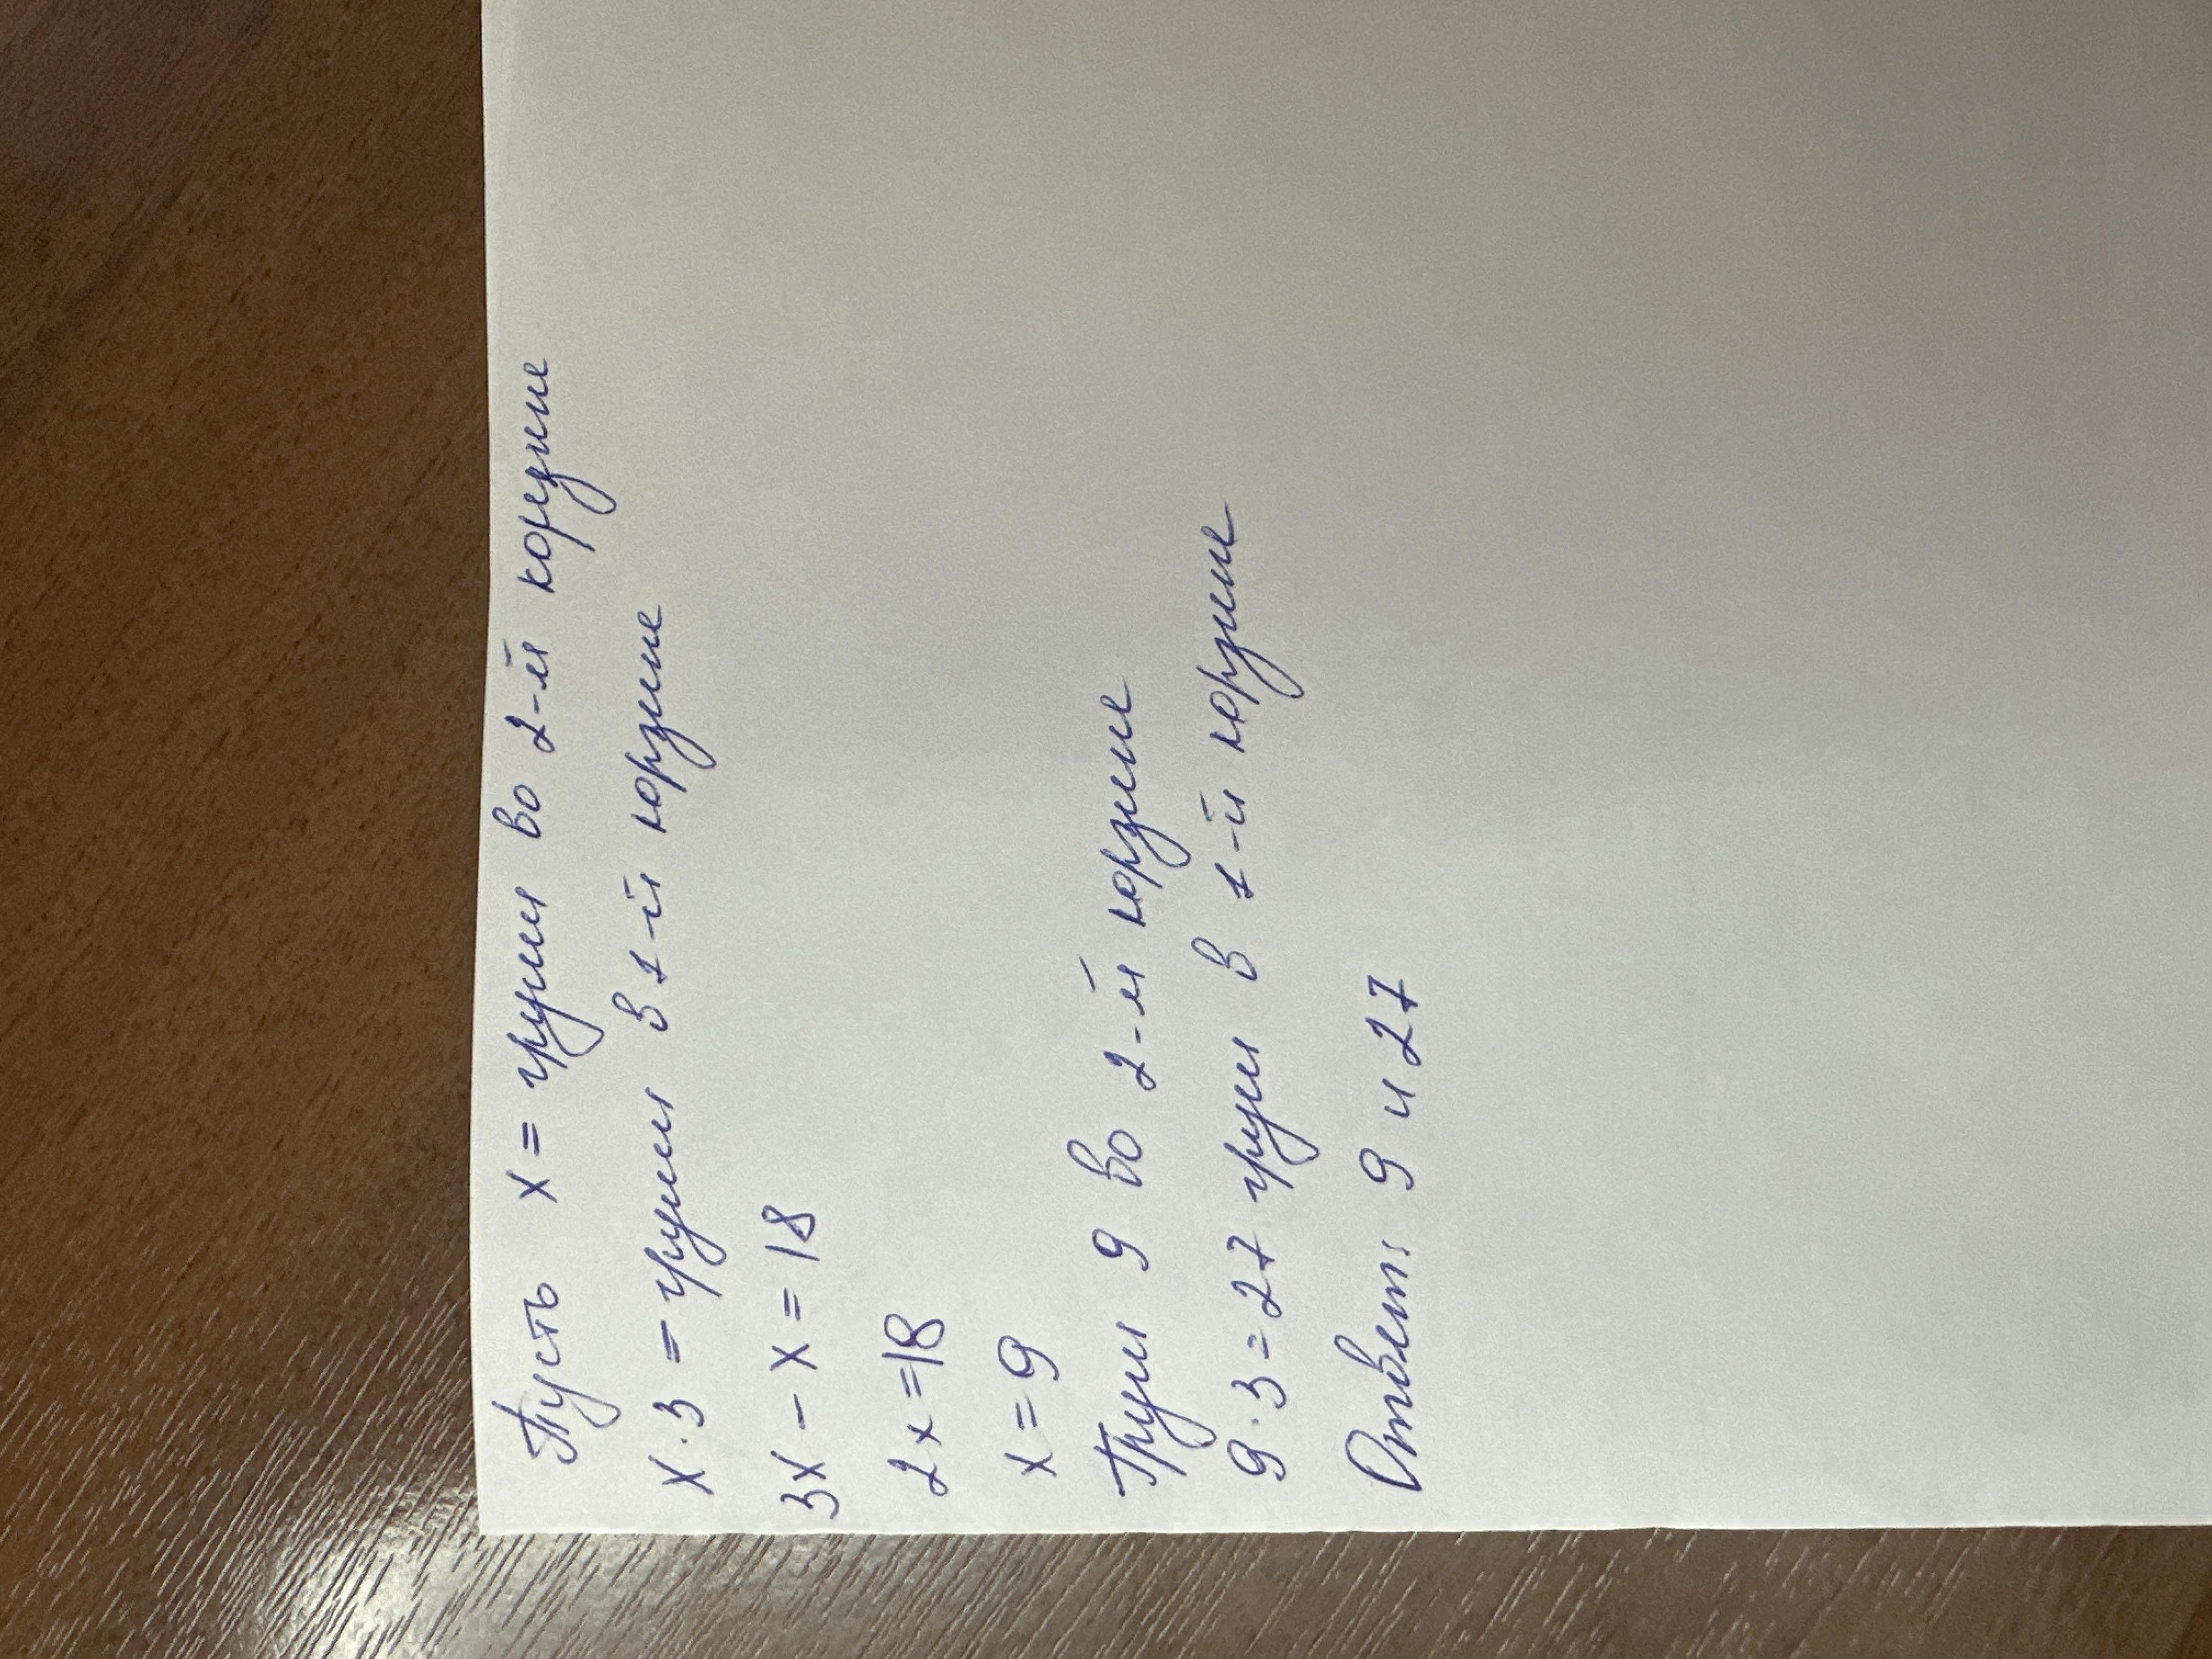 Пусть x = груш во 2-й корзине
x·3 = груш в 1-й корзине
3x - x = 18
2x = 18
x = 9
Груш 9 во 2-й корзине
9·3=27 груш в 1-й корзине
Ответ: 9 и 27